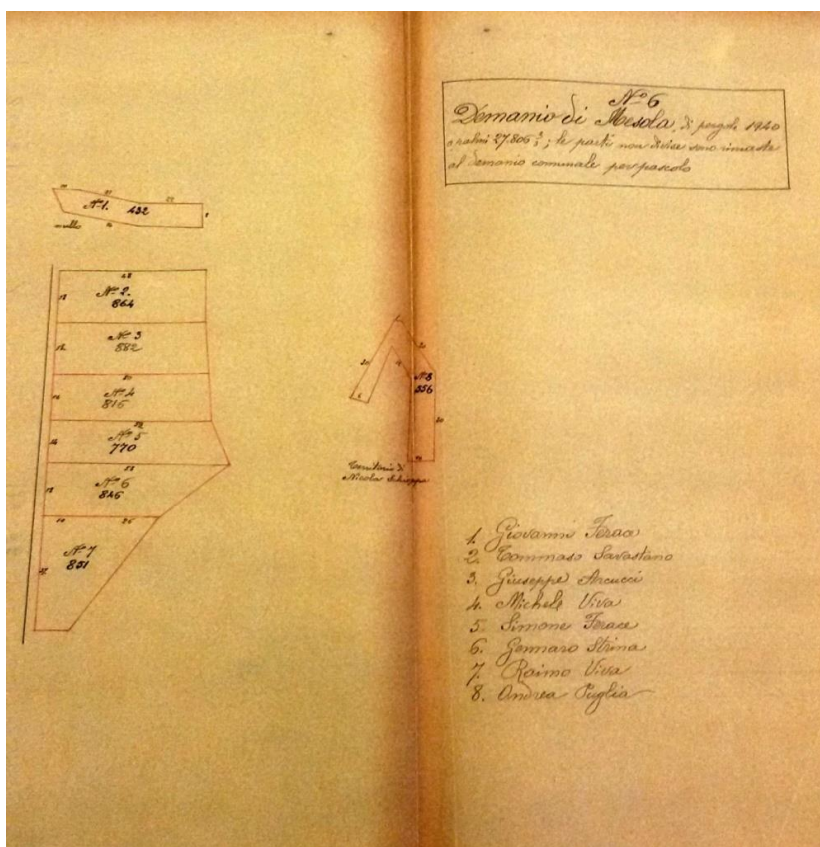 Nº 6
Demanio di Mesola, di pergole 1940
o palmi 27.806 ; le parti non divise sono rimaste
al demanio communale per pascolo
Nº 1. 432
Nº 2.
864
Nº 3
882
Nº 4
816
Nº 5
770
Nº 6
846
Nº 7
851
Nº 8
556
Territorio di
Nicola
1. Giovanni Ferace
2. Tommaso Savastano
3. Giuseppe Arcucci
4. Michele Viva
5. Simone Ferace
6. Gennaro Strina
7. Raimo Viva
8. Andrea Puglia